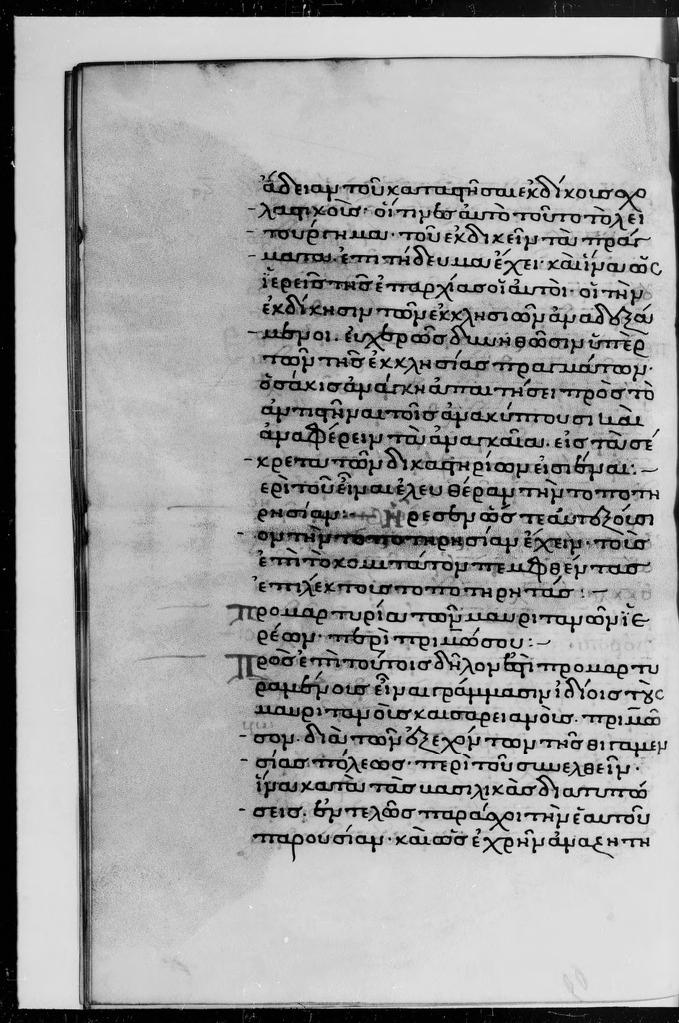 ἄδειαν τοῦ καταστῆσαι ἐκδίκους σχο
λαστικοὺς· οἵτινες αὐτὸ τοῦτο τὸ λει
τούργημα· τοῦ ἐκδικεῖν τὰ πράγ
ματα. ἐπιτήδευμα ἔχει· καὶ ἵνα ὡς
ἱερεῖς τῆς ἐπαρχίας οἱ αὐτοὶ· οἱ τὴν
ἐκδίκησιν τῶν ἐκκλησιῶν ἀναδεξά
μενοι. εὐχερῶς δυνηθῶσιν ὑπὲρ
τῶν τῆς ἐκκλησίας πραγμάτων·
ὁσάκις ἀνάγκη ἀπαιτήσει πρὸς τὸ
ἀντιστῆναι τοῖς ἀνακύπτουσι καὶ
ἀναφέρειν τὰ ἀναγκαῖα. εἰς τὰ σέ
κρετα τῶν δικαστηρίων εἰσιέναι:—
ερὶ τοῦ εἶναι ἐλευθέραν τὴν τοποτη
ρησίαν:— Ἤρεσεν ὥστε αὐτεξούσι
ον τὴν τοποτηρησίαν ἔχειν. τοὺς
ἐπὶ τὸ κομιτάτον πεμφθέντας
ἐπιλέκτους τοποτηρητάς:—
Προμαρτυρία τῶν μαυριτανῶν ἱε
ρέων· περὶ πριμώσου:—
Πρὸς ἐπὶ τούτοις δῆλον ἐπὶ προμαρτυ
ραμένοις εἶναι γράμμασιν ἰδίοις τοὺς
μαυριτανοὺς καισαρειανοὺς. πριμῶ
σον. διὰ τῶν ἐξεχόντων τῆς θιγανεν
σίας πόλεως· περὶ τοῦ συνελθεῖν·
ἵνα κατὰ τὰς βασιλικὰς διατυπώ
σεις. ἐντελῶς παράσχοι τὴν ἑαυτοῦ
παρουσίαν· καὶ ὡς ἐχρῆν ἀναζητη